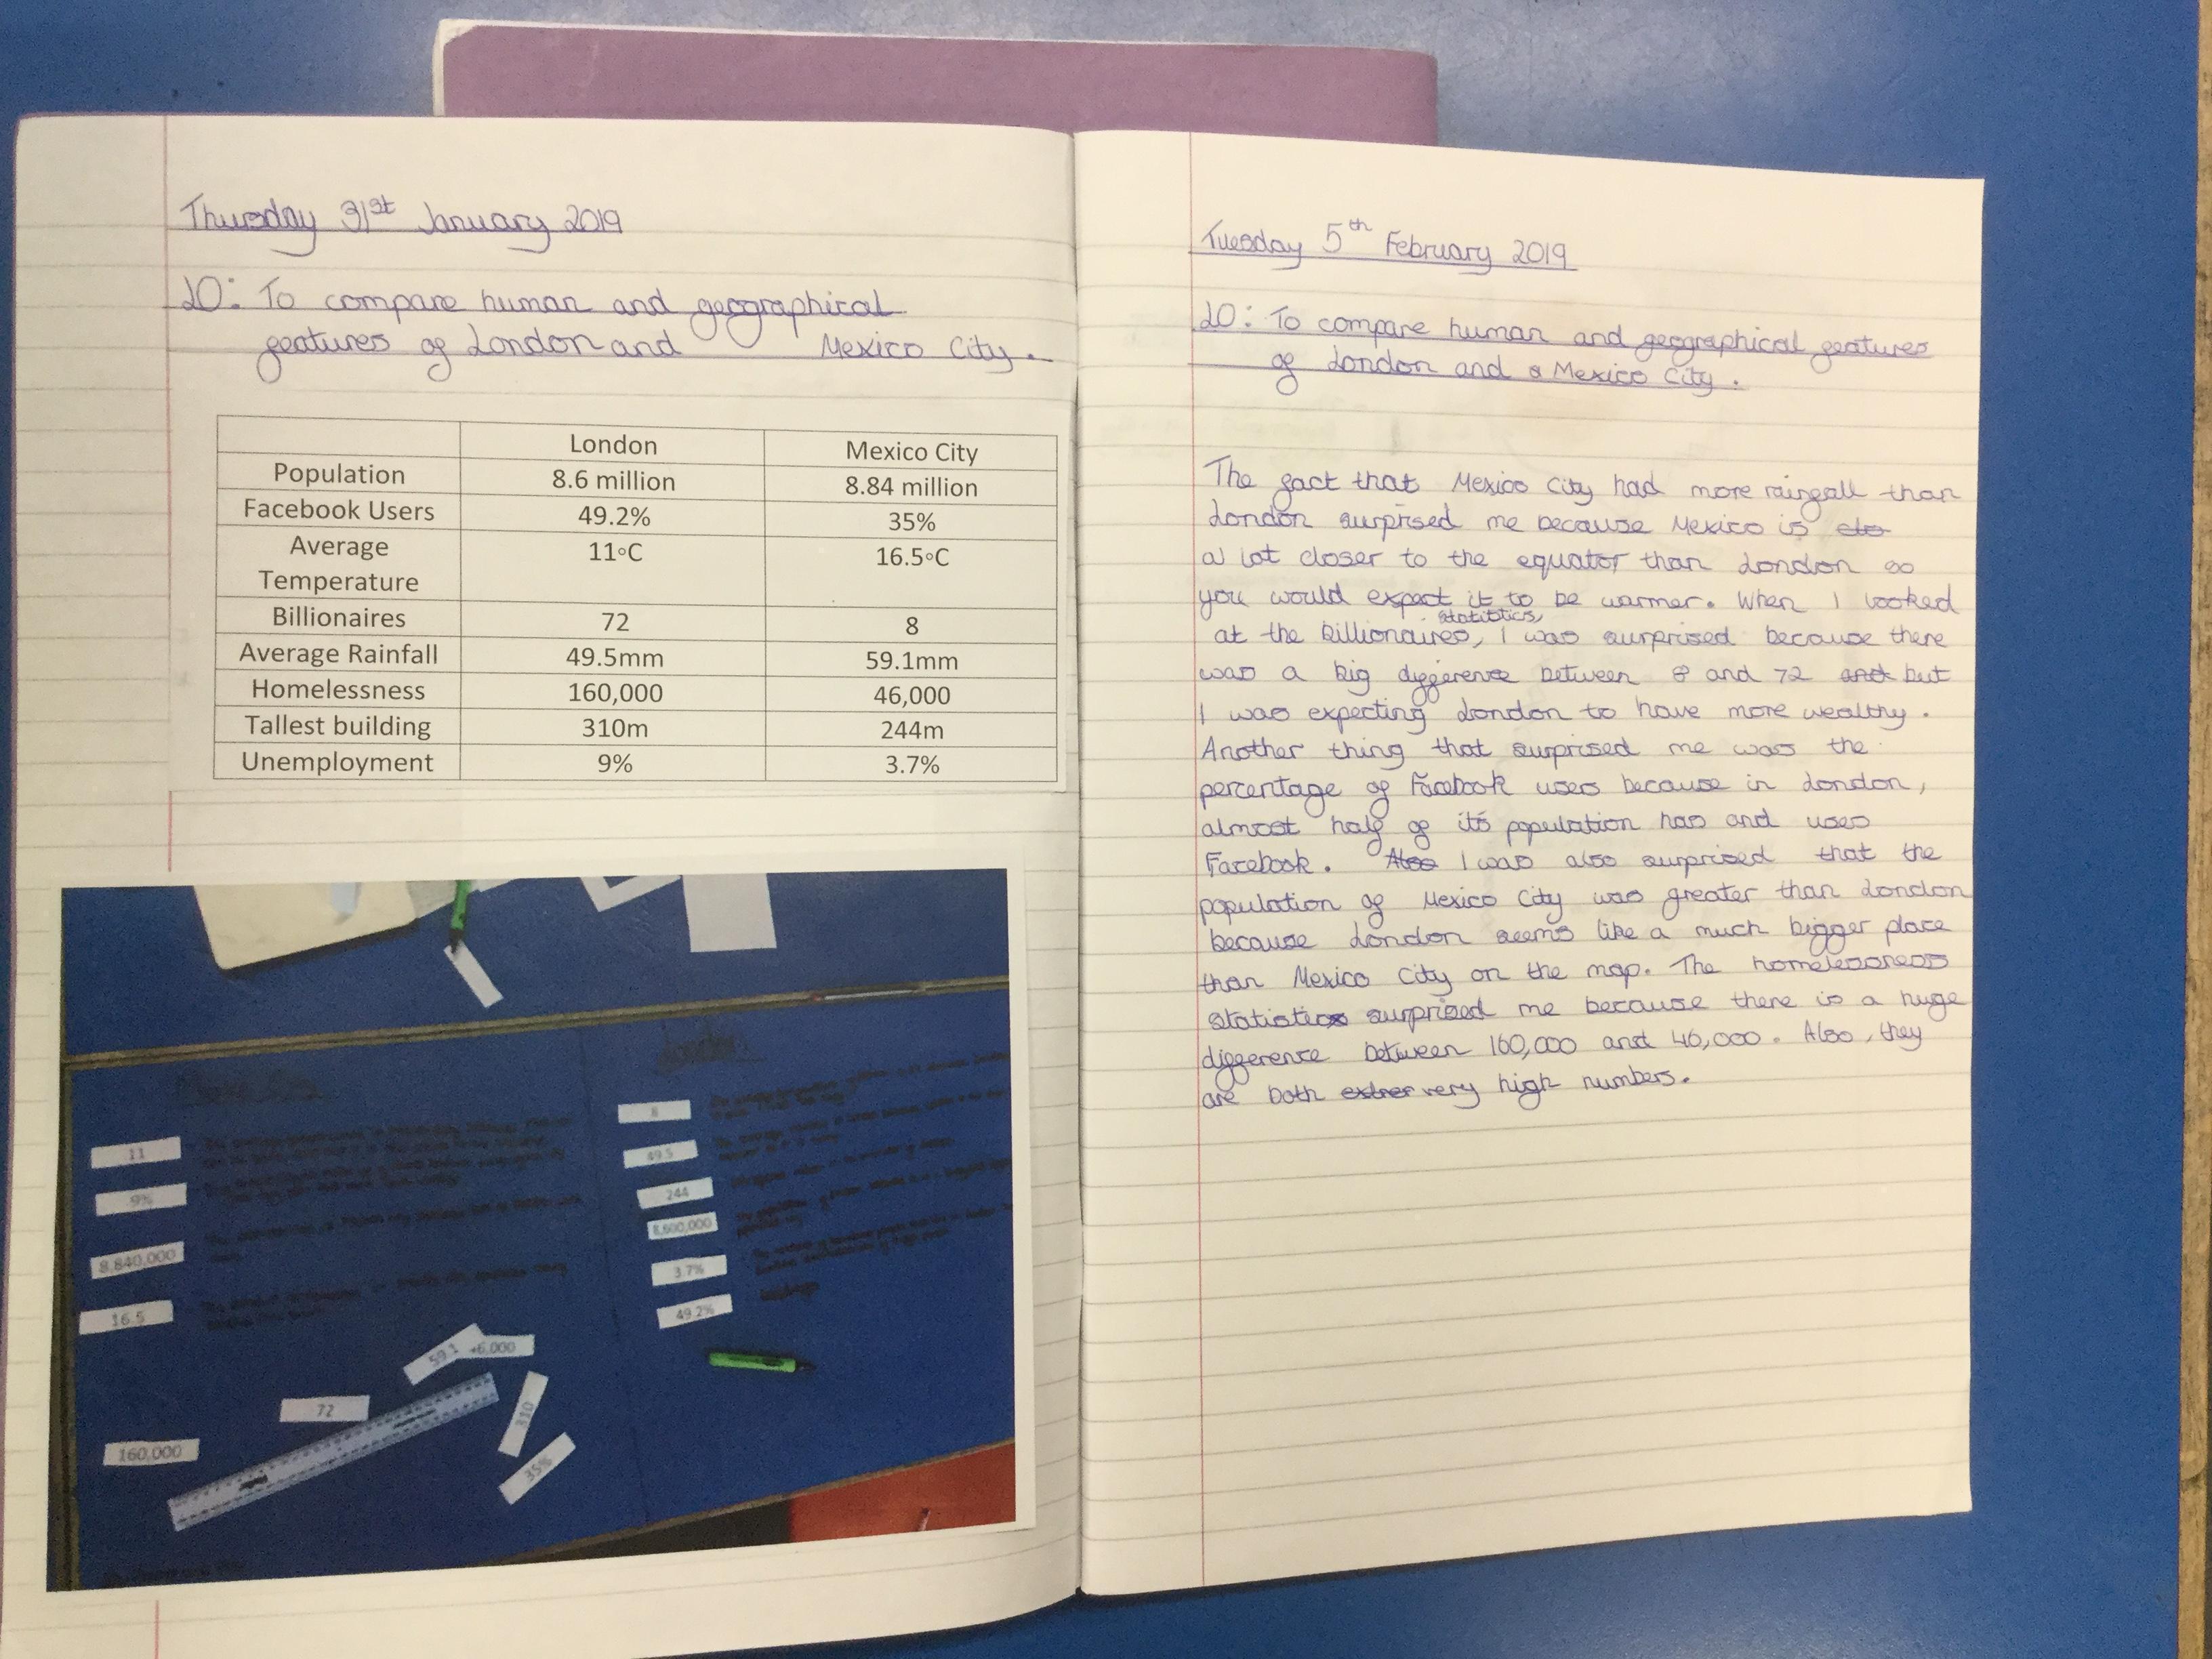 Thursday 31st January 2019
LO: To compare human and geographical
features of London and Mexico City.
London Mexico City
Population 8.6 million 8.84 million
Facebook Users 49.2% 35%
Average Temperature 11°C 16.5°C
Billionaires 72 8
Average Rainfall 49.5mm 59.1mm
Homelessness 160,000 46,000
Tallest building 310m 244m
Unemployment 9% 3.7%
11
9%
8,840,000
16.5
59.1
46,000
72
310
35%
160,000
8
49.5
244
8,600,000
3.7%
49.2%
Tuesday 5th February 2019
LO: To compare human and geographical features
of London and a Mexico City.
The fact that Mexico City had more rainfall than
London surprised me because Mexico is clo
a lot closer to the equator than London so
you would expect it to be warmer. When I looked
at the billionaires statistics, I was surprised because there
was a big difference between 8 and 72 and but
I was expecting London to have more wealthy.
Another thing that surprised me was the
percentage of Facebook users because in London,
almost half of its population has and uses
Facebook. Also I was also surprised that the
population of Mexico City was greater than London
because London seems like a much bigger place
than Mexico City on the map. The homelessness
statistics surprised me because there is a huge
difference between 160,000 and 46,000. Also, they
are both extrer very high numbers.